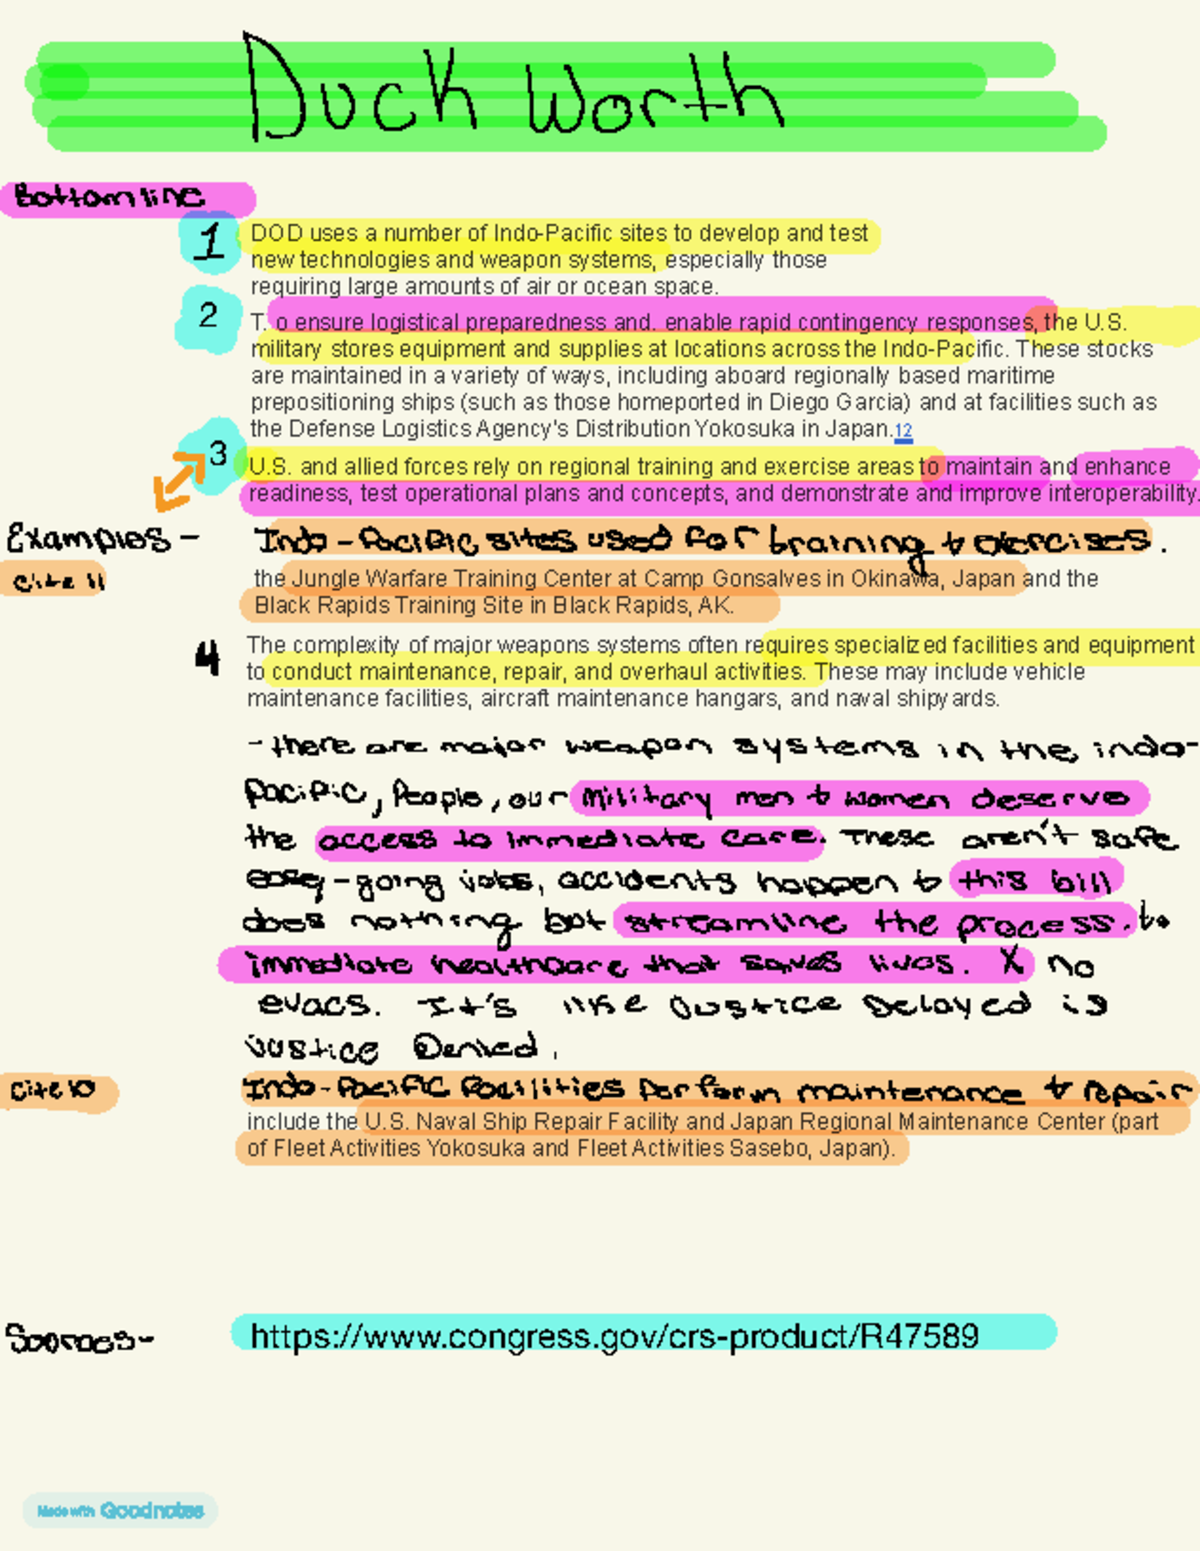 Duck Worth
Bottom line
1 DOD uses a number of Indo-Pacific sites to develop and test
new technologies and weapon systems, especially those
requiring large amounts of air or ocean space.
2 T. o ensure logistical preparedness and. enable rapid contingency responses, the U.S.
military stores equipment and supplies at locations across the Indo-Pacific. These stocks
are maintained in a variety of ways, including aboard regionally based maritime
prepositioning ships (such as those homeported in Diego Garcia) and at facilities such as
the Defense Logistics Agency's Distribution Yokosuka in Japan.12
3 U.S. and allied forces rely on regional training and exercise areas to maintain and enhance
readiness, test operational plans and concepts, and demonstrate and improve interoperability.
Examples - Indo-Pacific sites used for training + exercises.
Cite 11 the Jungle Warfare Training Center at Camp Gonsalves in Okinawa, Japan and the
Black Rapids Training Site in Black Rapids, AK.
4 The complexity of major weapons systems often requires specialized facilities and equipment
to conduct maintenance, repair, and overhaul activities. These may include vehicle
maintenance facilities, aircraft maintenance hangars, and naval shipyards.
- there are major weapon systems in the indo-
Pacific, People, our Military men + women deserve
the access to immediate care. These aren't safe
easy-going jobs, accidents happen + this bill
does nothing but streamline the process. to
immediate healthcare that saves lives. X No
evacs. It's like Justice Delayed is
justice Denied.
Cite 10 Indo-Pacific Facilities Perform maintenance + repair
include the U.S. Naval Ship Repair Facility and Japan Regional Maintenance Center (part
of Fleet Activities Yokosuka and Fleet Activities Sasebo, Japan).
Sources- https://www.congress.gov/crs-product/R47589
Made with Goodnotes